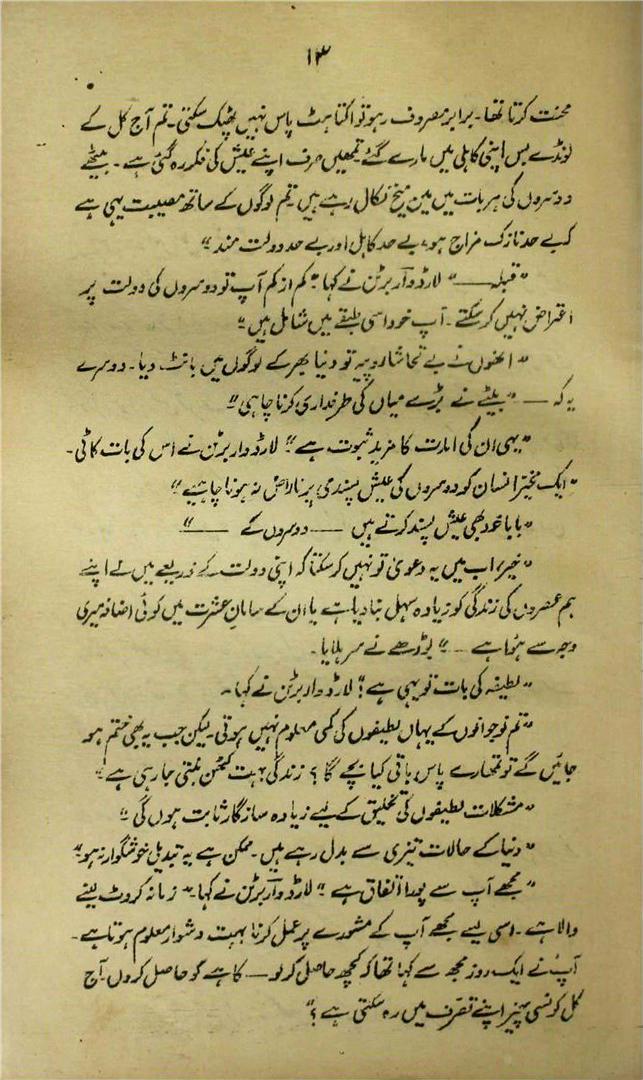 ۱۳
محنت کرتا تھا۔ برابر مصروف رہو تو اکتاہٹ پاس نہیں پھٹک سکتی۔ تم آج کل کے
لونڈے بس اپنی کاہلی میں مارے گئے۔ تمھیں صرف اپنے عیش کی فکر رہ گئی ہے۔ بیٹھے
دوسروں کی ہر بات میں مین میخ نکال رہے ہیں۔ تم لوگوں کے ساتھ مصیبت یہی ہے
کہ بے حد نازک مزاج ہو، بے حد کاہل اور بے حد دولت مند"
"قبلہ ــــ" لارڈ واربرٹن نے کہا "کم از کم آپ تو دوسروں کی دولت پر
اعتراض نہیں کر سکتے۔ آپ خود اسی طبقے میں شامل ہیں"
"انھوں نے بے تحاشا روپیہ تو دنیا بھر کے لوگوں میں بانٹ دیا۔ دوسرے
یہ کہ ــــ" بیٹے نے بڑے میاں کی طرفداری کرنا چاہی"
"یہی ان کی امارت کا مزید ثبوت ہے" لارڈ واربرٹن نے اس کی بات کاٹی۔
"ایک مخیر انسان کو دوسروں کی عیش پسندی پر ناراض نہ ہونا چاہیے"
"بابا خود بھی عیش پسند کرتے ہیں ــــ دوسروں کے ــــ"
"خیر، اب میں یہ دعویٰ تو نہیں کر سکتا کہ اپنی دولت کے ذریعے میں نے اپنے
ہم عصروں کی زندگی کو زیادہ سہل بنا دیا ہے یا ان کے سامانِ عشرت میں کوئی اضافہ میری
وجہ سے ہوا ہے ــــ" بڈھے نے سر ہلایا۔
"لطیفہ کی بات تو یہی ہے" لارڈ واربرٹن نے کہا۔
"تم نوجوانوں کے یہاں لطیفوں کی کمی معلوم نہیں ہوتی۔ لیکن جب یہ بھی ختم ہو
جائیں گے تو تمھارے پاس باقی کیا بچے گا؟ زندگی بہت کٹھن بنتی جا رہی ہے"
"مشکلات لطیفوں کی تخلیق کے لیے زیادہ سازگار ثابت ہوں گی"
"دنیا کے حالات تیزی سے بدل رہے ہیں۔ ممکن ہے یہ تبدیلی خوشگوار نہ ہو"
"مجھے آپ سے پورا اتفاق ہے" لارڈ واربرٹن نے کہا۔ "زمانہ کروٹ لینے
والا ہے۔ اسی لیے مجھے آپ کے مشورے پر عمل کرنا بہت دشوار معلوم ہوتا ہے۔
آپ نے ایک روز مجھ سے کہا تھا کہ کچھ حاصل کر لو ــــ کاہے کو حاصل کروں۔ آج
کل کونسی چیز اپنے تصرف میں رہ سکتی ہے؟"